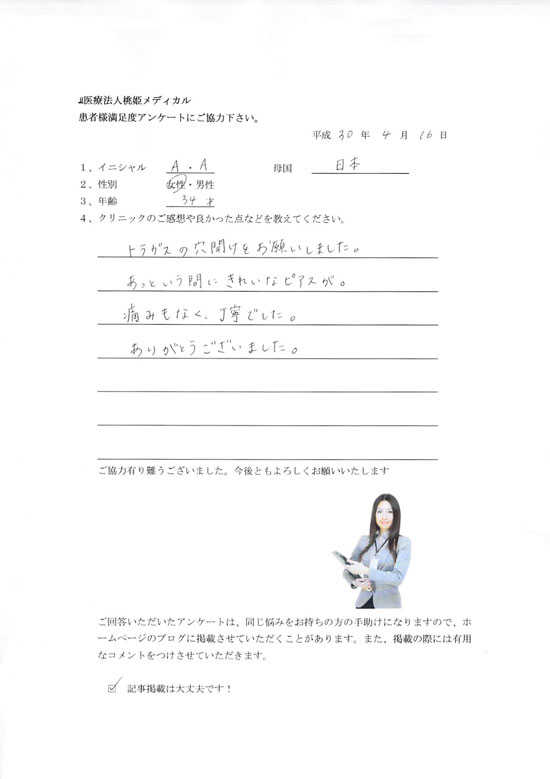 医療法人桃姫メディカル
患者様満足度アンケートにご協力下さい。
平成 30 年 4 月 16 日
1、イニシャル A・A 母国 日本
2、性別 女性・男性
3、年齢 34才
4、クリニックのご感想や良かった点などを教えてください。
トラガスの穴開けをお願いしました。
あっという間にきれいなピアスが。
痛みもなく、丁寧でした。
ありがとうございました。
ご協力有り難うございました。今後ともよろしくお願いいたします
ご回答いただいたアンケートは、同じ悩みをお持ちの方の手助けになりますので、ホ
ームページのブログに掲載させていただくことがあります。また、掲載の際には有用
なコメントをつけさせていただきます。
☑ 記事掲載は大丈夫です！